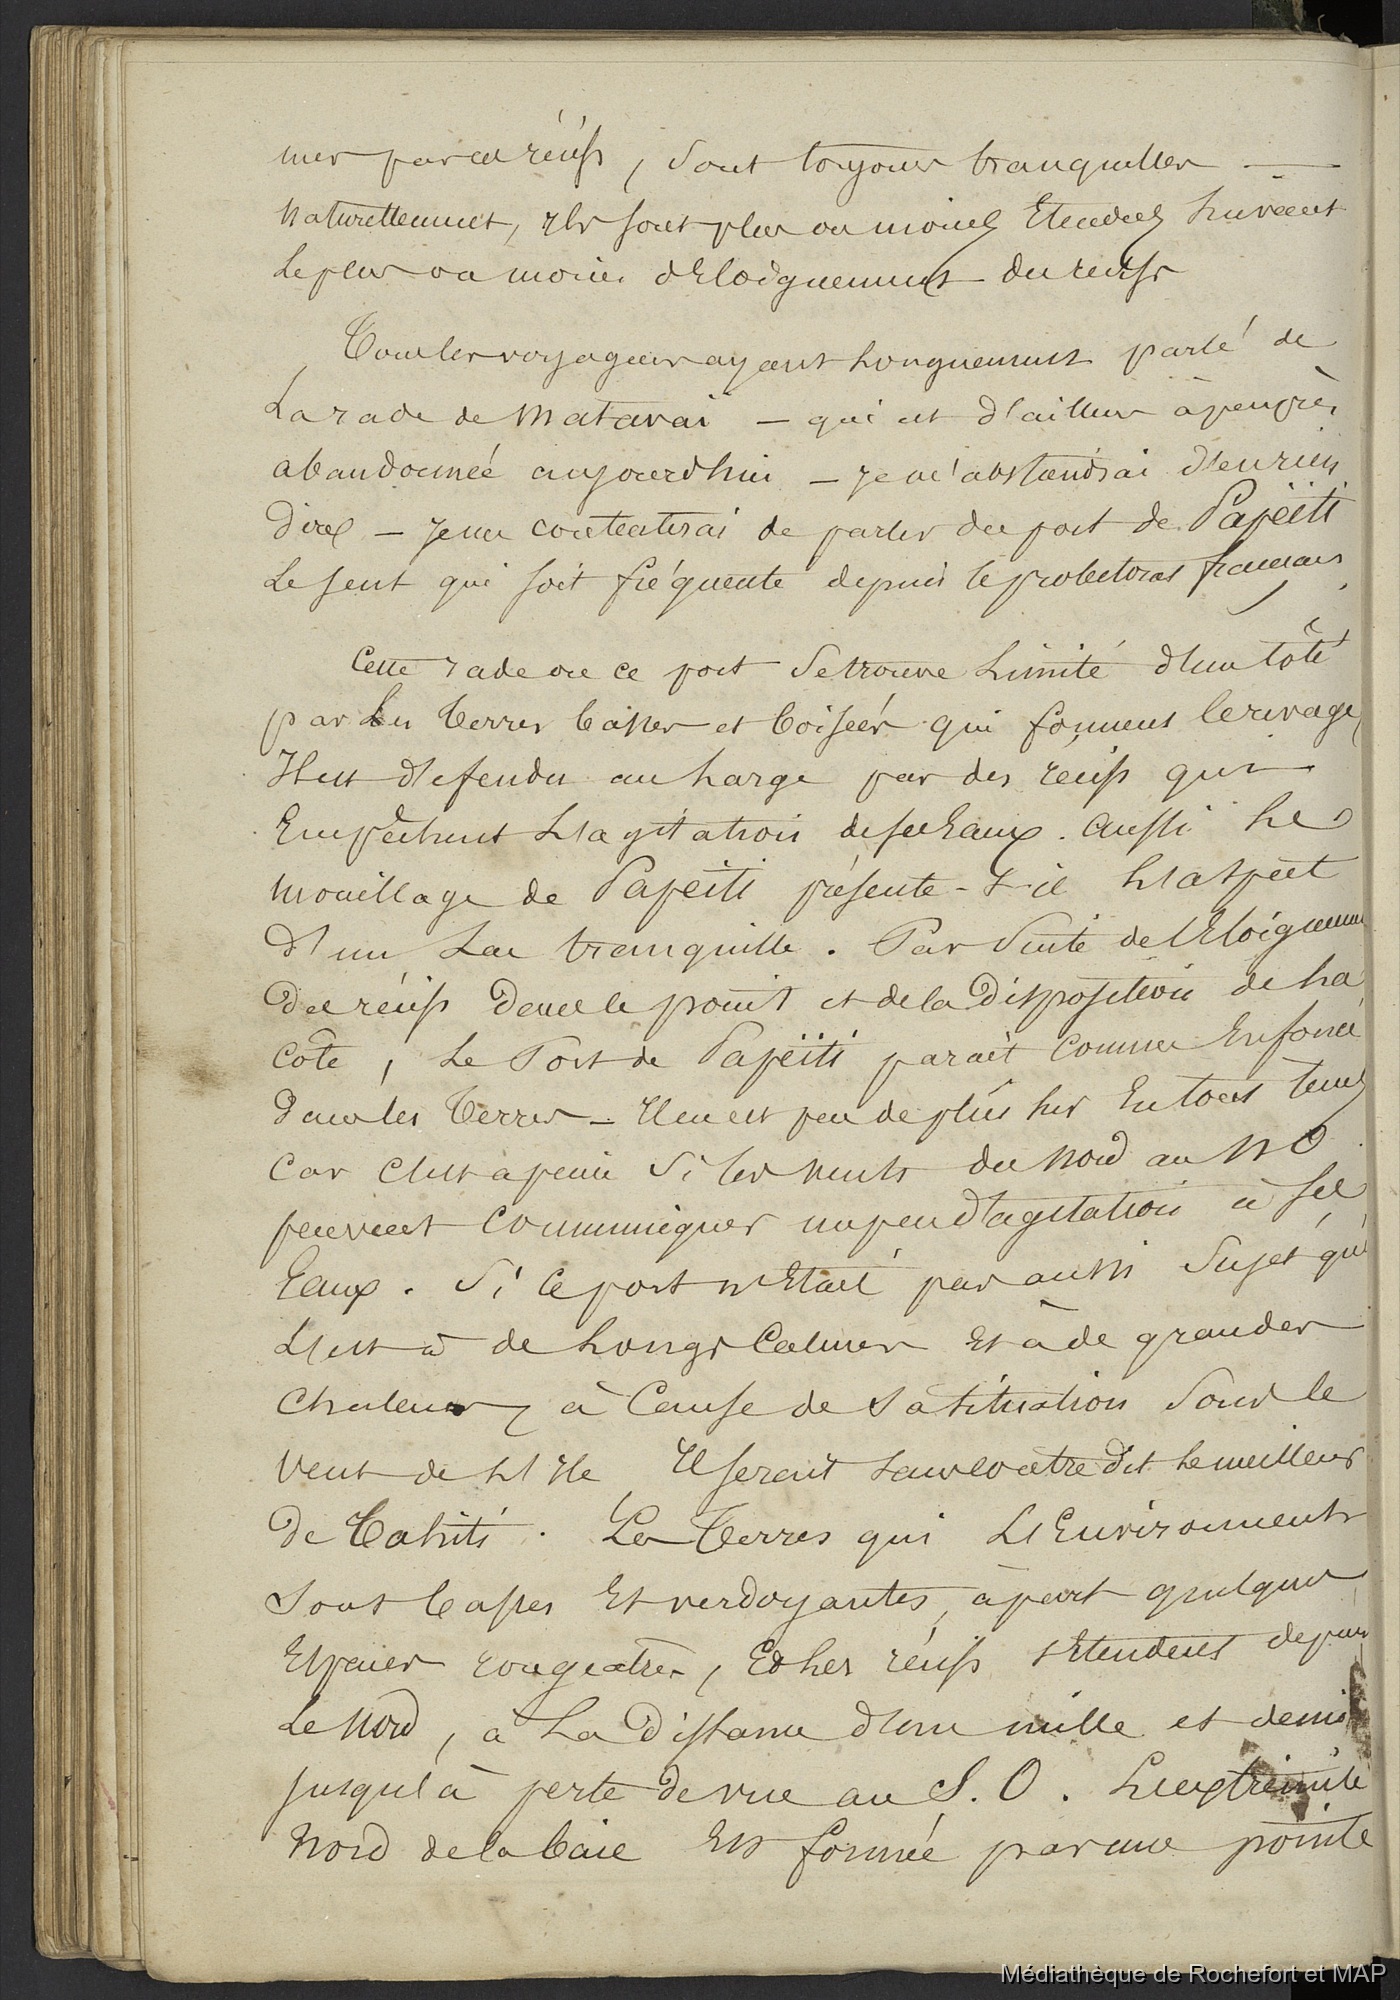 mer par ces récifs, sont toujours tranquilles —
naturellement, ils sont plus ou moins Etendus suivant
Le plus ou moins d'Eloignement du récifs
Tous les voyageurs ayant longuement parlé de
La rade de Matavaï — qui est d'ailleurs à peu près
abandonnée aujourd'hui — je m'abstiendrai d'en rien
dire — je me contenterai de parler du port de Papeïti
Le seul qui soit fréquenté depuis le protectorat français
Cette rade ou ce port se trouve Limité d'un côté
par Les terres basses et boisées qui forment le rivage
Il est défendu au Large par des récifs qui
Empêchent L'agitation de ses Eaux. aussi Le
mouillage de Papeiti présente-t-il L'aspect
d'un Lac tranquille. Par suite de l'Eloignement
des récifs dans le point et de la disposition de La
Côte, Le Port de Papeïti parait comme Enfoncé
dans les terres — Il en est peu de plus sûr En tous tems
Car c'est à peine si les vents du Nord au NO
peuvent communiquer un peu d'agitation à ses
Eaux. Si ce port n'Etait pas aussi sujet qu'
L'est à de Longs Calmes Et à de grandes
Chaleurs, à Cause de sa situation sous le
vent de L'Ile Il serait sans contredit Le meilleur
de Tahiti. Les terres qui L'Environnent
sont basses Et verdoyantes, à part quelques
Espaces rougeatres, Et Les récifs s'Etendent depuis
Le Nord, à La distance d'un mille et demi
jusqu'à perte de vue au S. O. L'extrémité
Nord de la baie Est formée par une pointe
Médiathèque de Rochefort et MAP